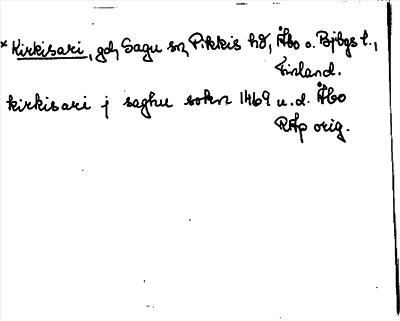 * Kirkisari, gd, Sagu sn, Pikkis hd, Åbo o. Bjbgs l.,
Finland.
kirkisari j saghu sokn 1469 u.d. Åbo
RAp orig.